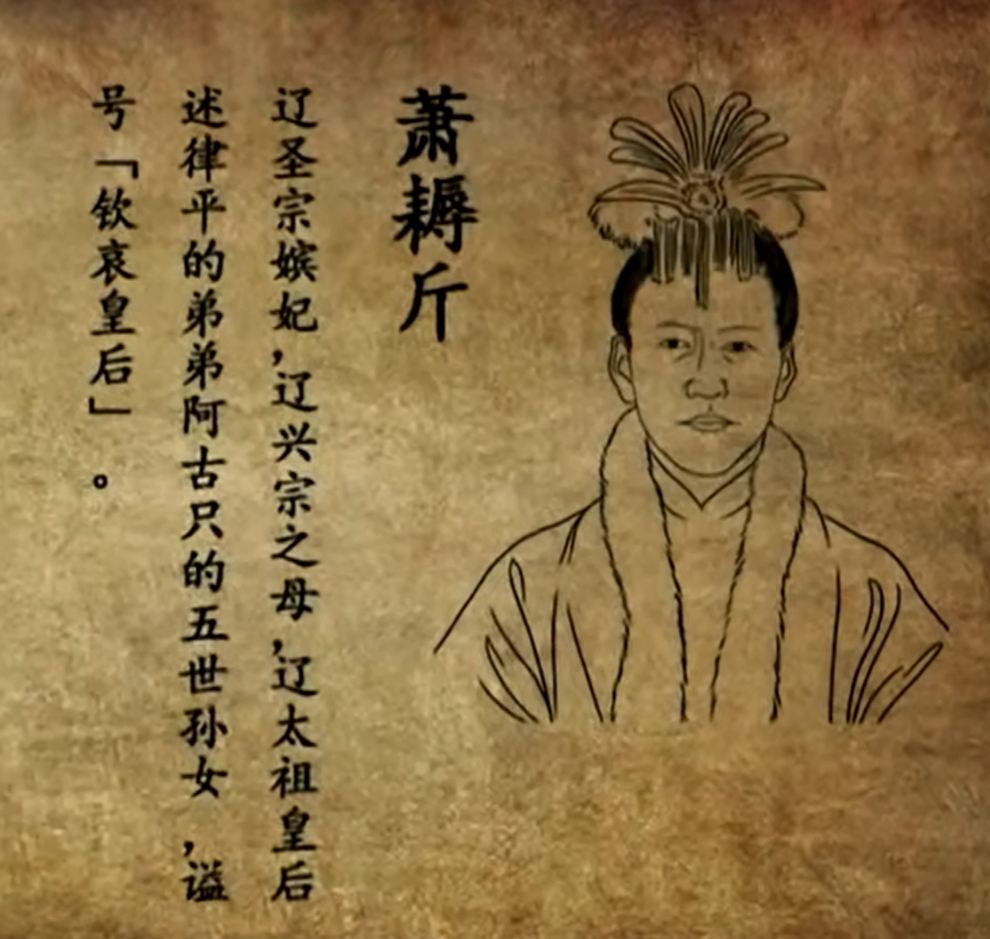 萧耨斤
辽圣宗嫔妃，辽兴宗之母，辽太祖皇后
述律平的弟弟阿古只的五世孙女，谥
号「钦哀皇后」。